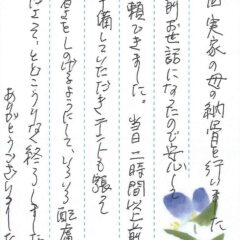 回実家の母の納骨を行いました
前お世話になったので安心して
頼できました。当日二時間以上前
準備していただきテントも張って
暑さをしのげるようにして、いろいろ配慮
とどこおりなく終えました
ありがとうございました